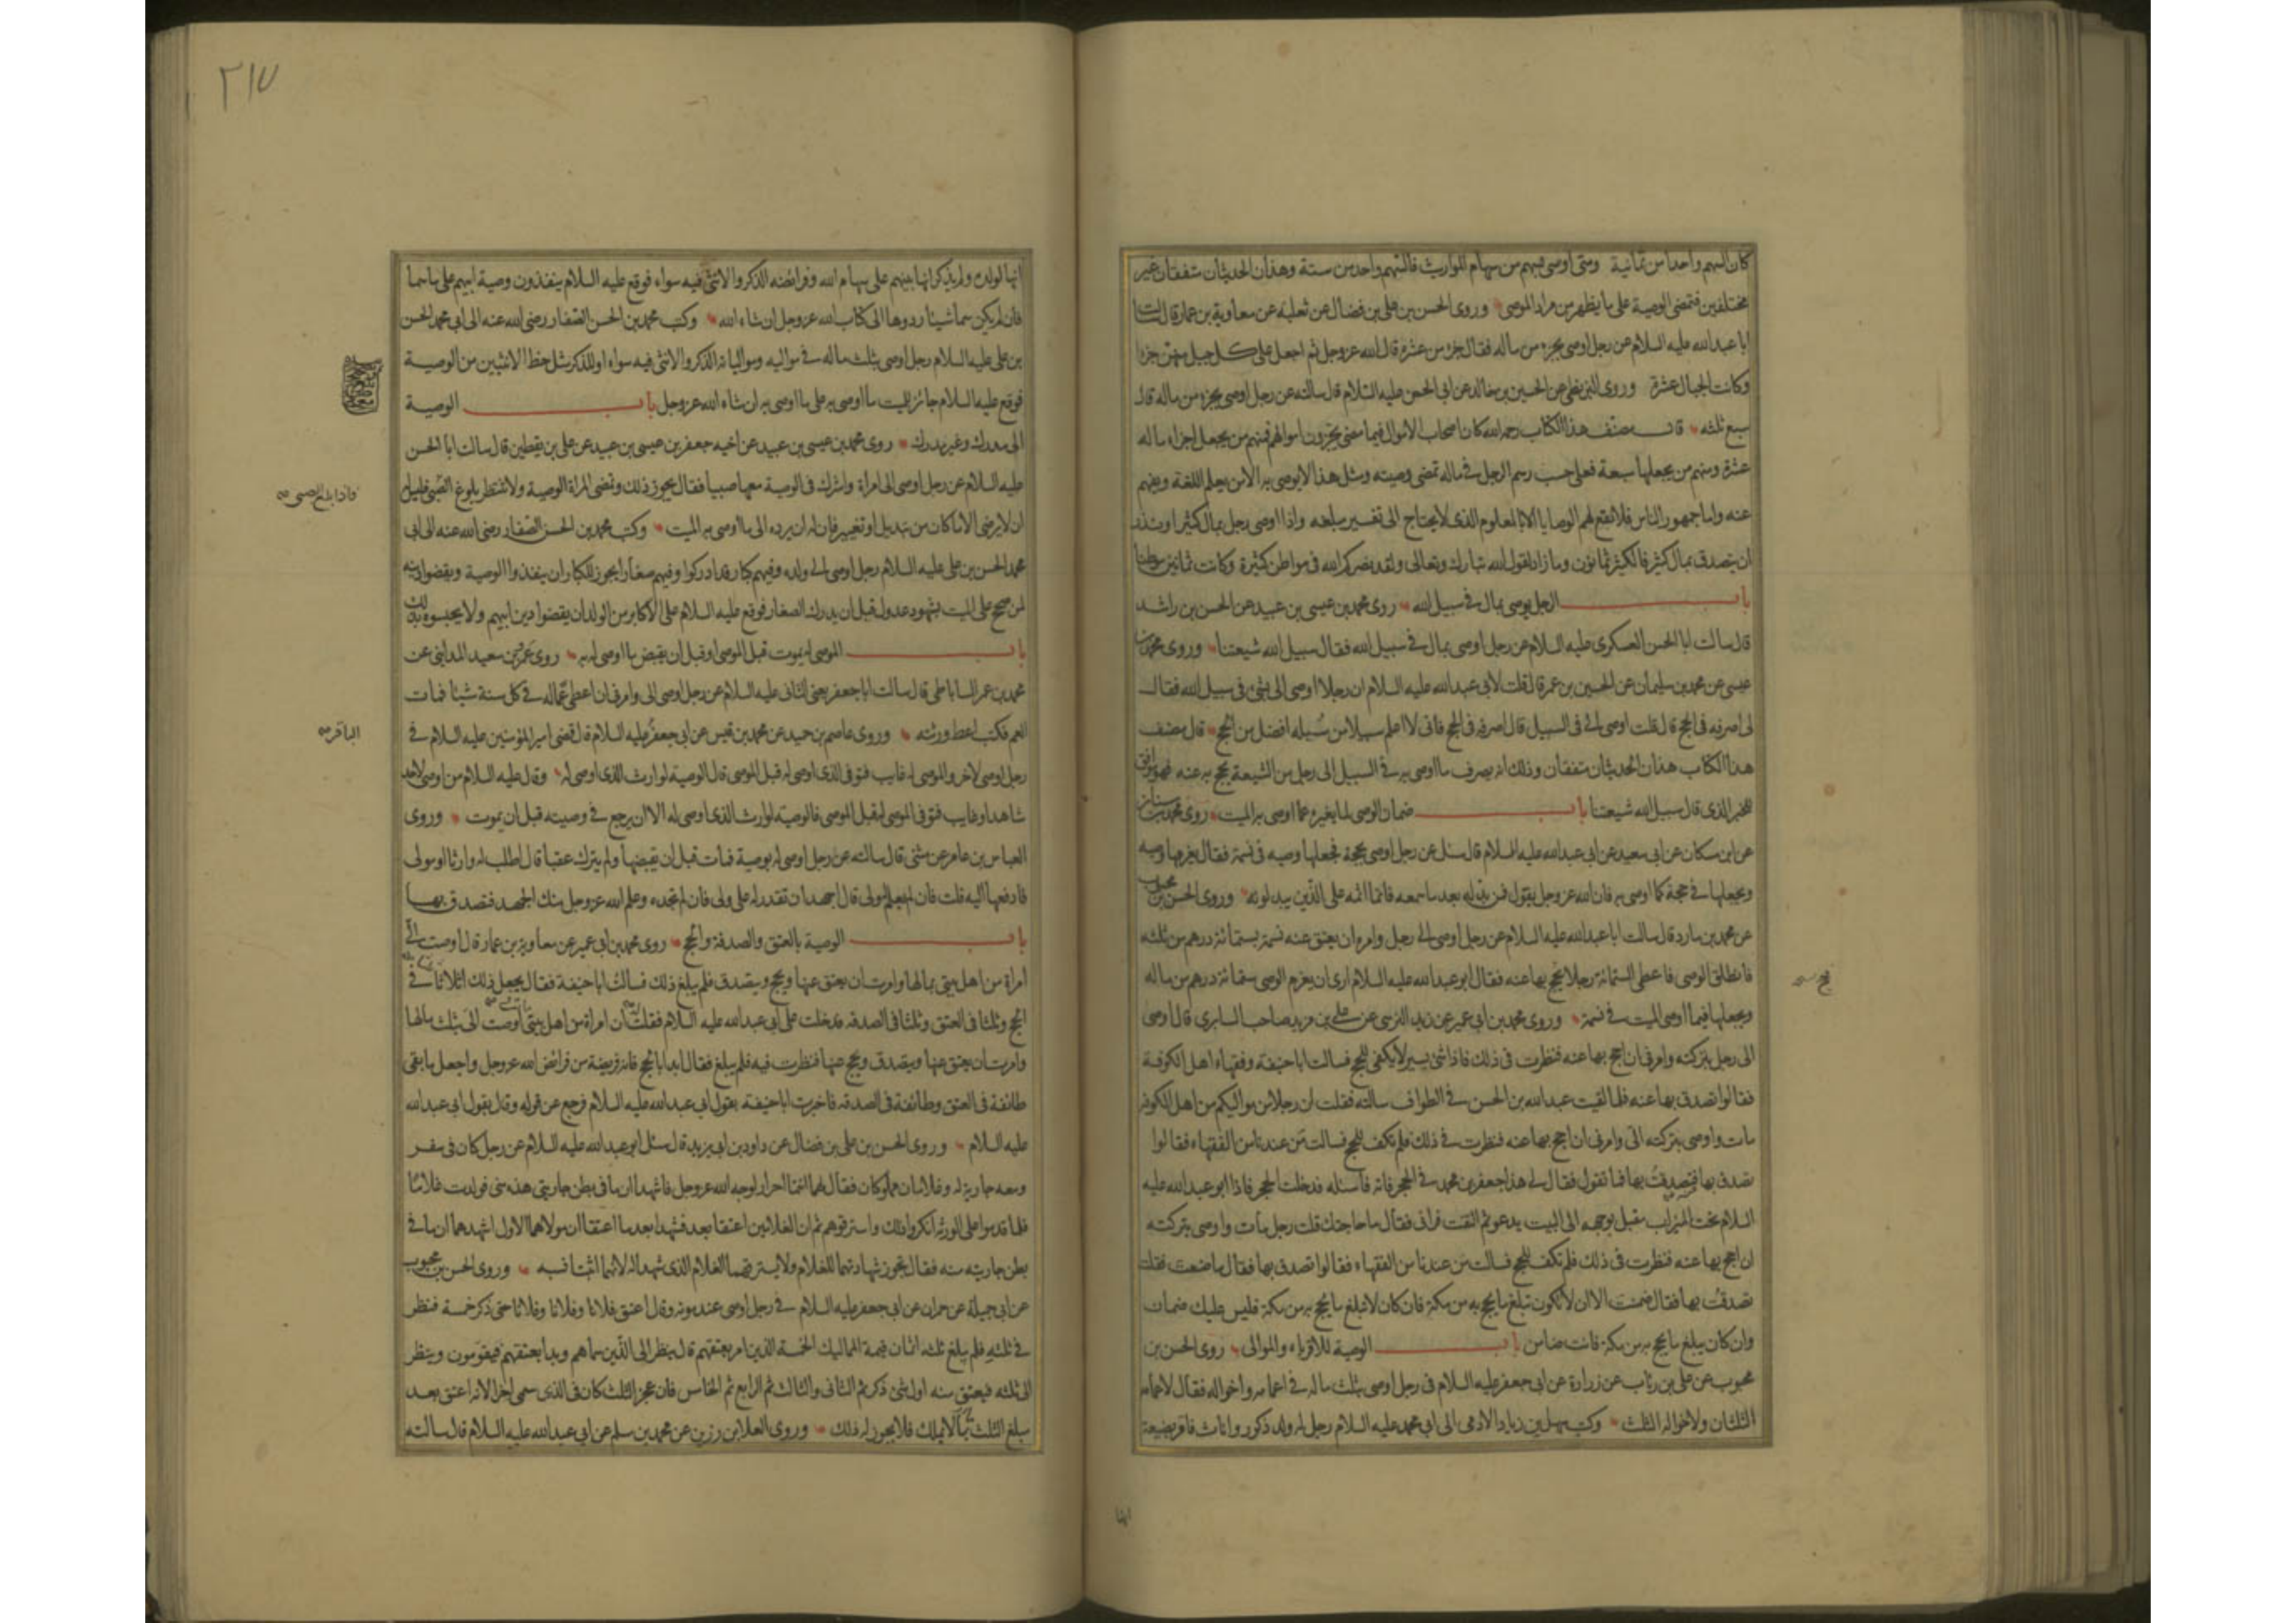 كان السهم واحدا من ثمانية ومتى اوصى بسهم من سهام المواريث فالسهم واحد من ستة وهذان الحديثان متفقان غير
مختلفين فتمضى الوصية على ما يظهر من مراد الموصى وروى الحسن بن على بن فضال عن ثعلبة عن معاوية بن عمار قال سالت
ابا عبد الله عليه السلام عن رجل اوصى بجزء من ماله فقال جزء من عشرة قال الله عز وجل ثم اجعل على كل جبل منهن جزءا
وكانت الجبال عشرة وروى البزنطى عن الحسين بن خالد عن ابى الحسن عليه السلام قال سالته عن رجل اوصى بجزء من ماله قال
سبع ثلثه قال مصنف هذا الكتاب رحمه الله كان اصحاب الاموال فيما مضى يجزون اموالهم فمنهم من يجعل اجزاء ماله
عشرة ومنهم من يجعلها سبعة فعلى حسب رسم الرجل فى ماله تمضى وصيته ومثل هذا لا يوصى به الا من يعلم اللغة ويفهم
عنه واما جمهور الناس فلا تقع لهم الوصايا الا بالمعلوم الذى لا يحتاج الى تفسير مبلغه واذا اوصى رجل بمال كثير او نذر
ان يتصدق بمال كثير فالكثير ثمانون وما زاد لقول الله تبارك وتعالى ولقد نصركم الله فى مواطن كثيرة وكانت ثمانين موطنا
باب الرجل يوصى بمال فى سبيل الله روى محمد بن عيسى بن عبيد عن الحسن بن راشد
قال سالت ابا الحسن العسكرى عليه السلام عن رجل اوصى بمال فى سبيل الله فقال سبيل الله شيعتنا وروى محمد بن
عيسى عن محمد بن سليمان عن الحسين بن عمر قال قلت لابى عبد الله عليه السلام ان رجلا اوصى الى بشئ فى سبيل الله فقال
لى اصرفه فى الحج قال قلت اوصى الى فى السبيل قال اصرفه فى الحج فانى لا اعلم سبيلا من سبله افضل من الحج قال مصنف
هذا الكتاب هذان الحديثان متفقان وذلك انه يصرف ما اوصى به فى السبيل الى رجل من الشيعة يحج به عنه فهو موافق
للخبر الذى قال سبيل الله شيعتنا باب ضمان الوصى لما يغيره عما اوصى به الميت روى محمد بن سنان
عن ابن مسكان عن ابى سعيد عن ابى عبد الله عليه السلام قال سئل عن رجل اوصى بحجة فجعلها وصيه فى نسمة فقال يغرمها وصيه
ويجعلها فى حجة كما اوصى به فان الله عز وجل يقول فمن بدله بعد ما سمعه فانما اثمه على الذين يبدلونه وروى الحسن بن محبوب
عن محمد بن مارد قال سالت ابا عبد الله عليه السلام عن رجل اوصى الى رجل وامره ان يعتق عنه نسمة بستمائة درهم من ثلثه
فانطلق الوصى فاعطى الستمائة رجلا يحج بها عنه فقال ابو عبد الله عليه السلام ارى ان يغرم الوصى ستمائة درهم من ماله
ويجعلها فيما اوصى الميت فى نسمة وروى محمد بن ابى عمير عن زيد النرسى عن على بن مزيد صاحب السابرى قال اوصى
الى رجل بتركته وامرنى ان احج بها عنه فنظرت فى ذلك فاذا شئ يسير لا يكفى للحج فسالت ابا حنيفة وفقهاء اهل الكوفة
فقالوا تصدق بها عنه فلما لقيت عبد الله بن الحسن فى الطواف سالته فقلت ان رجلا من مواليكم من اهل الكوفة
مات واوصى بتركته الى وامرنى ان احج بها عنه فنظرت فى ذلك فلم تكف للحج فسالت من عندنا من الفقهاء فقالوا
تصدق بها فتصدقت بها فما تقول فقال لى هذا جعفر بن محمد فى الحجر فاته فاسئله فدخلت الحجر فاذا ابو عبد الله عليه
السلام تحت الميزاب مقبل بوجهه الى البيت يدعو ثم التفت فرانى فقال ما حاجتك قلت رجل مات واوصى بتركته
ان احج بها عنه فنظرت فى ذلك فلم تكف للحج فسالت من عندنا من الفقهاء فقالوا تصدق بها فقال ما صنعت فقلت
تصدقت بها فقال ضمنت الا ان لا تكون تبلغ ما يحج به من مكة فان كان لا تبلغ ما يحج به من مكة فليس عليك ضمان
وان كان يبلغ ما يحج به من مكة فانت ضامن باب الوصية للاقرباء والموالى روى الحسن بن
محبوب عن على بن رئاب عن زرارة عن ابى جعفر عليه السلام فى رجل اوصى بثلث ماله فى اعمامه واخواله فقال لاعمامه
الثلثان ولاخواله الثلث وكتب سهل بن زياد الادمى الى ابى محمد عليه السلام رجل له ولد ذكور واناث فاقر بضيعة
انها
٢١٧
انها لولده ولم يذكر انها بينهم على سهام الله وفرائضه الذكر والانثى فيه سواء فوقع عليه السلام ينفذون وصية ابيهم على ما سما
فان لم يكن سما شيئا ردوها الى كتاب الله عز وجل ان شاء الله وكتب محمد بن الحسن الصفار رضى الله عنه الى ابى محمد الحسن
بن على عليه السلام رجل اوصى بثلث ماله فى مواليه ومولياته الذكر والانثى فيه سواء او للذكر مثل حظ الانثيين من الوصية
فوقع عليه السلام جائز للميت ما اوصى به على ما اوصى به ان شاء الله عز وجل باب الوصية
الى مدرك وغير مدرك روى محمد بن عيسى بن عبيد عن اخيه جعفر بن عيسى بن عبيد عن على بن يقطين قال سالت ابا الحسن
عليه السلام عن رجل اوصى الى امراة واشرك فى الوصية معها صبيا فقال يجوز ذلك وتمضى المراة الوصية ولا تنتظر بلوغ الصبى فليس له
فاذا بلغ الصبى صح
ان لا يرضى الا ما كان من تبديل او تغيير فان له ان يرده الى ما اوصى به الميت وكتب محمد بن الحسن الصفار رضى الله عنه الى ابى
محمد الحسن بن على عليه السلام رجل اوصى الى ولده وفيهم كبار قد ادركوا وفيهم صغار ايجوز للكبار ان ينفذوا الوصية ويقضوا دينه
لمن صح على الميت بشهود عدول قبل ان يدرك الصغار فوقع عليه السلام على الاكابر من الولد ان يقضوا دين ابيهم ولا يحبسوه بذلك
باب الموصى له يموت قبل الموصى او قبل ان يقبض ما اوصى له به روى عمرو بن سعيد المداينى عن
محمد بن عمر الساباطى قال سالت ابا جعفر يعنى الثانى عليه السلام عن رجل اوصى الى وامرنى ان اعطى عما له فى كل سنة شيئا فمات
العم فكتب اعط ورثته وروى عاصم بن حميد عن محمد بن قيس عن ابى جعفر عليه السلام قال قضى امير المؤمنين عليه السلام فى
الباقر صح
رجل اوصى لاخر والموصى له غايب فتوفى الذى اوصى له قبل الموصى قال الوصية لوارث الذى اوصى له وقال عليه السلام من اوصى لاحد
شاهدا او غايب فتوفى الموصى له قبل الموصى فالوصية لوارث الذى اوصى له الا ان يرجع فى وصيته قبل ان يموت وروى
العباس بن عامر عن مثنى قال سالته عن رجل اوصى له بوصية فمات قبل ان يقبضها ولم يترك عقبا قال اطلب له وارثا او مولى
فادفعها اليه قلت فان لم يعلم له مولى قال اجهد ان تقدر له على ولى فان لم تجده وعلم الله عز وجل منك الجهد فتصدق بها
باب الوصية بالعتق والصدقة والحج روى محمد بن ابى عمير عن معاوية بن عمار قال اوصت الى
امراة من اهل بيتى بمالها وامرت ان يعتق عنها ويحج ويتصدق فلم يبلغ ذلك فسالت ابا حنيفة فقال يجعل ذلك اثلاثا ثلثا فى
الحج وثلثا فى العتق وثلثا فى الصدقه فدخلت على ابى عبد الله عليه السلام فقلت له ان امراة من اهل بيتى اوصت الى بثلث مالها
وامرت ان يعتق عنها ويتصدق ويحج عنها فنظرت فيه فلم يبلغ فقال ابدا بالحج فانه فريضة من فرائض الله عز وجل واجعل ما بقى
طائفة فى العتق وطائفة فى الصدقه فاخبرت ابا حنيفة بقول ابى عبد الله عليه السلام فرجع عن قوله وقال بقول ابى عبد الله
عليه السلام وروى الحسن بن على بن فضال عن داود بن ابى يزيد قال سئل ابو عبد الله عليه السلام عن رجل كان فى سفر
ومعه جارية له وغلامان مملوكان فقال لهما انتما احرار لوجه الله عز وجل فاشهدا ان ما فى بطن جاريتى هذه منى فولدت غلاما
فلما قدموا على الورثه انكروا ذلك واسترقوهم ثم ان الغلامين اعتقا بعد فشهدا بعد ما اعتقا ان مولاهما الاول اشهدهما ان ما فى
بطن جاريته منه فقال تجوز شهادتهما للغلام ولا يسترقهما الغلام الذى شهدا له لانهما اثبتا نسبه وروى الحسن بن محبوب
عن ابى جميلة عن حمران عن ابى جعفر عليه السلام فى رجل اوصى عند موته وقال اعتق فلانا وفلانا وفلانا حتى ذكر خمسة فنظر
فى ثلثه فلم يبلغ ثلثه اثمان قيمة المماليك الخمسة الذين امر بعتقهم قال ينظر الى الذين سماهم ويبدا بعتقهم فيقومون وينظر
الى ثلثه فيعتق منه اول شئ ذكر ثم الثانى والثالث ثم الرابع ثم الخامس فان عجز الثلث كان فى الذى سمى اخرا لانه اعتق بعد
مبلغ الثلث ما لا يملك فلا يجوز له ذلك وروى العلا بن رزين عن محمد بن مسلم عن ابى عبد الله عليه السلام قال سالته